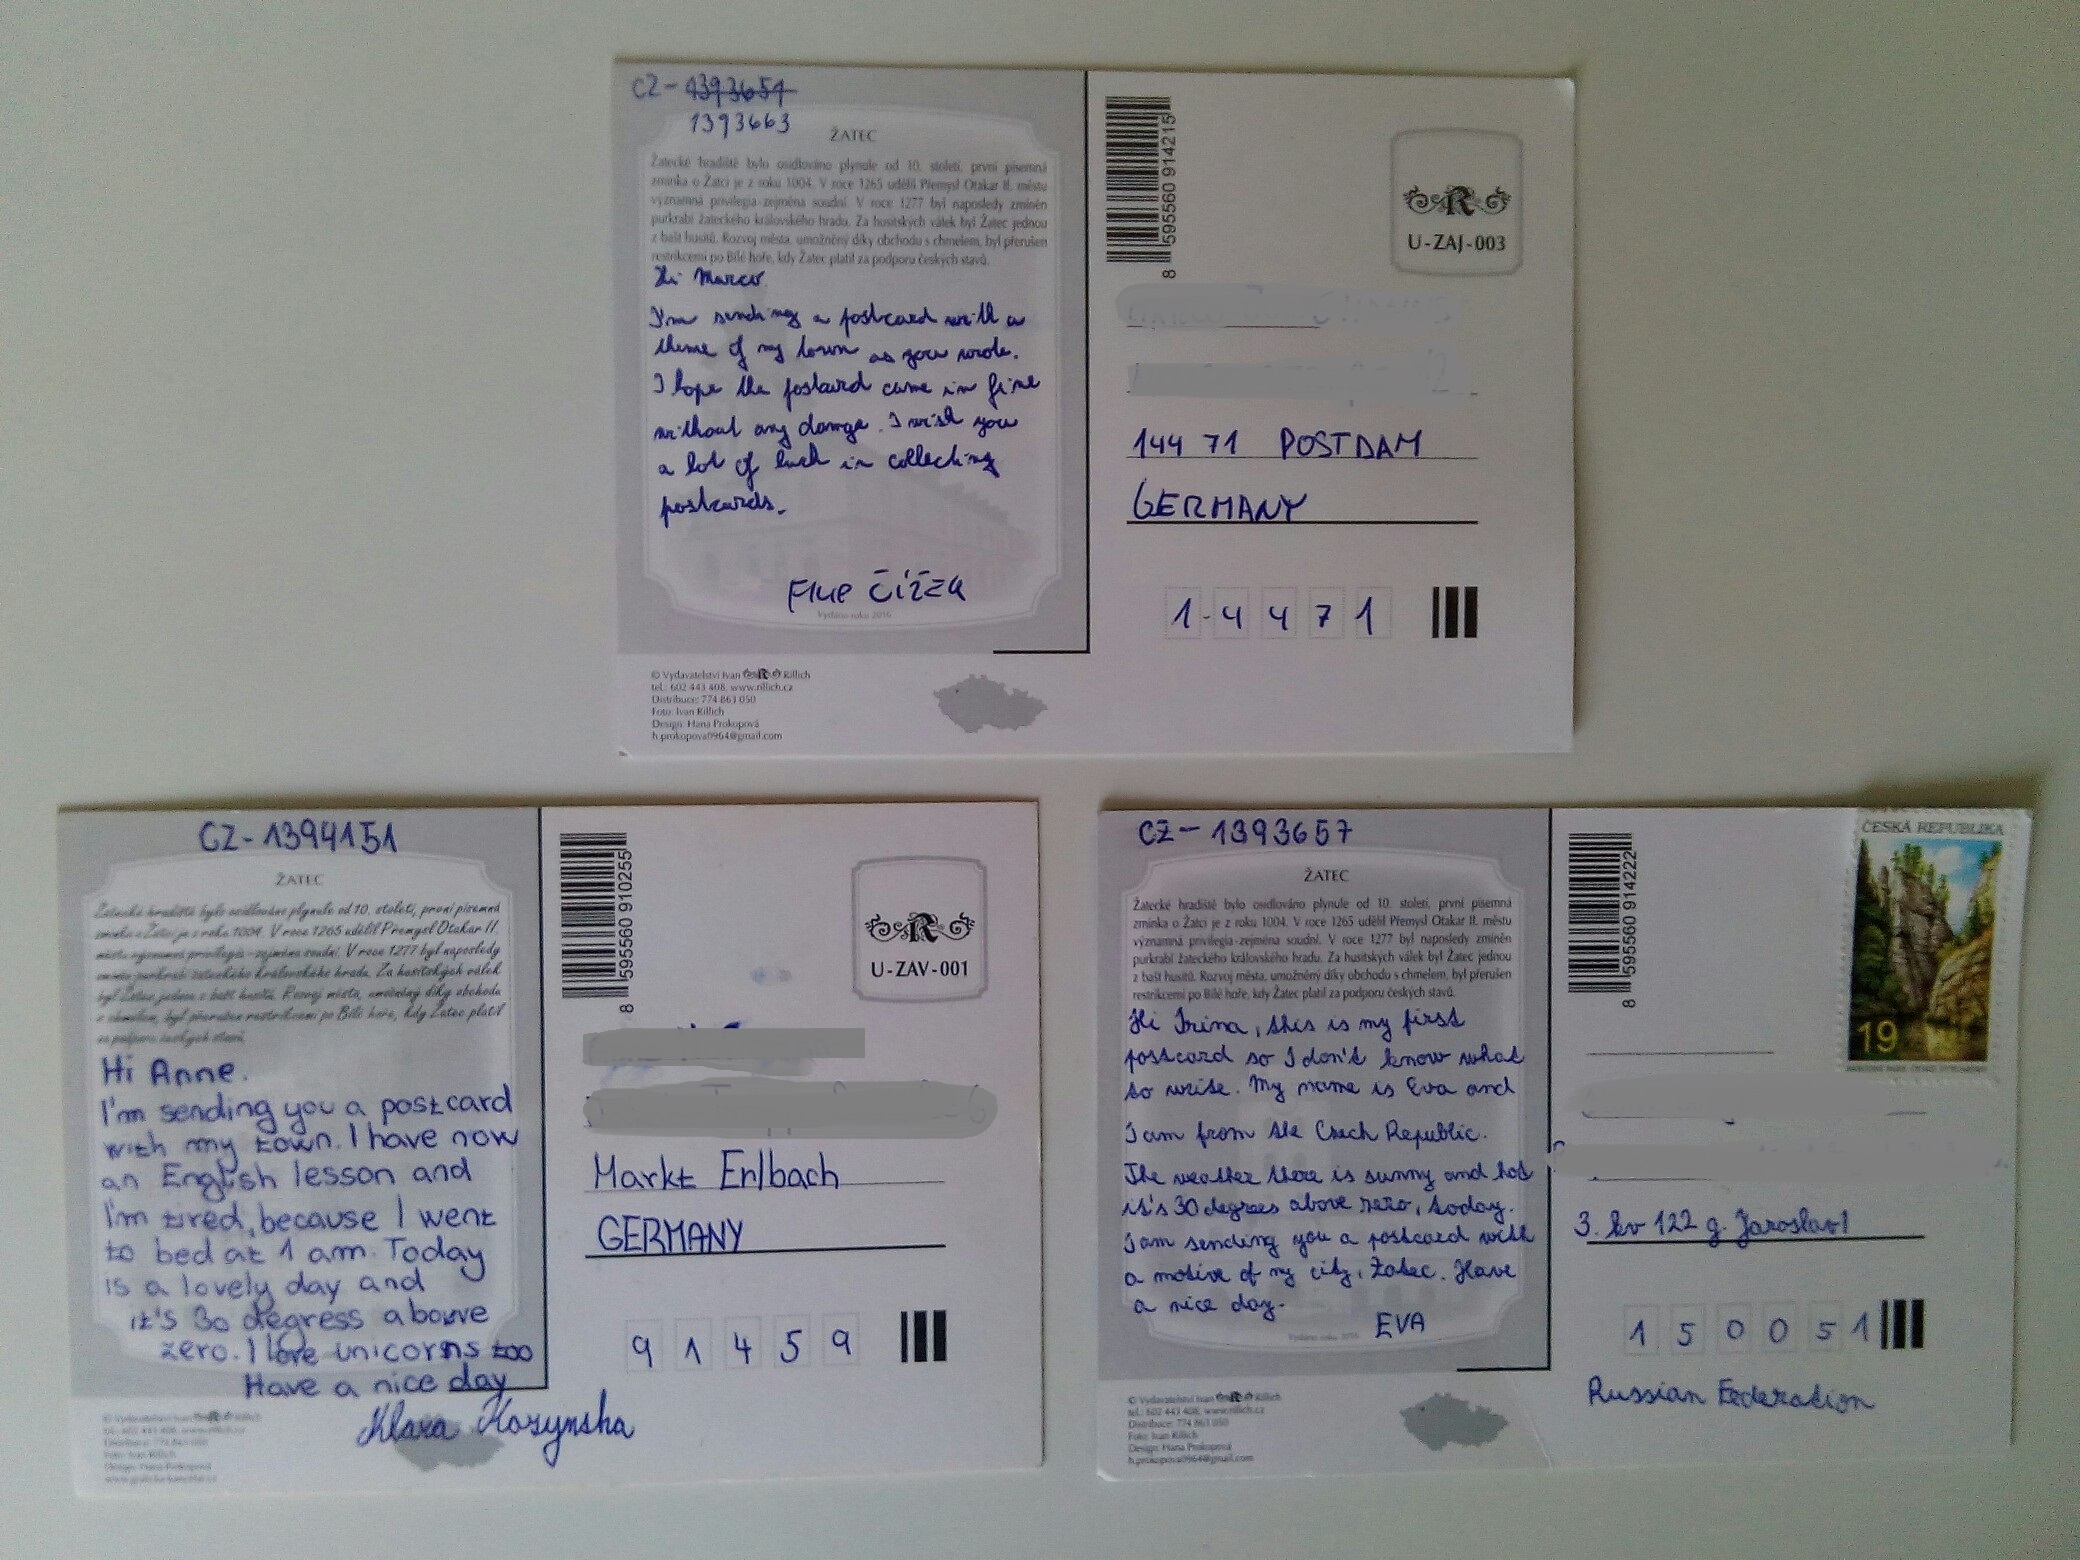 CZ-1393657
1393663
ŽATEC
Žatecké hradiště bylo osídlováno plynule od 10. století, první písemná
zmínka o Žatci je z roku 1004. V roce 1265 udělil Přemysl Otakar II. městu
významná privilegia-zejména soudní. V roce 1277 byl naposledy zmíněn
purkrabí žateckého královského hradu. Za husitských válek byl Žatec jednou
z bašt husitů. Rozvoj města, umožněný díky obchodu s chmelem, byl přerušen
restrikcemi po Bílé hoře, kdy Žatec platil za podporu českých stavů.
Hi Marco
I'm sending a postcard with a
theme of my town as you wrote.
I hope the postcard came in fine
without any damge. I wish you
a lot of luck in collecting
postcards.
Čížek
Vydáno roku 2016
© Vydavatelství Ivan Rillich
tel.: 602 443 408, www.rillich.cz
Distribuce: 774 863 050
Foto: Ivan Rillich
Design: Hana Prokopová
h.prokopova0964@gmail.com
8 595560 914215
R
U-ZAJ-003
144 71 POSTDAM
GERMANY
1 4 4 7 1
CZ-1394151
ŽATEC
Žatecké hradiště bylo osídlováno plynule od 10. století, první písemná
zmínka o Žatci je z roku 1004. V roce 1265 udělil Přemysl Otakar II.
městu významná privilegia-zejména soudní. V roce 1277 byl naposledy
zmíněn purkrabí žateckého královského hradu. Za husitských válek
byl Žatec jednou z bašt husitů. Rozvoj města, umožněný díky obchodu
s chmelem, byl přerušen restrikcemi po Bílé hoře, kdy Žatec platil
za podporu českých stavů.
Hi Anne.
I'm sending you a postcard
with my town. I have now
an English lesson and
I'm tired, because I went
to bed at 1 am. Today
is a lovely day and
it's 30 degress above
zero. I love unicorns too
Have a nice day
Klara Kozynska
© Vydavatelství Ivan Rillich
tel.: 602 443 408, www.rillich.cz
Distribuce: 774 863 050
Foto: Ivan Rillich
Design: Hana Prokopová
8 595560 910255
R
U-ZAV-001
Markt Erlbach
GERMANY
9 1 4 5 9
CZ-1393657
ŽATEC
Žatecké hradiště bylo osídlováno plynule od 10. století, první písemná
zmínka o Žatci je z roku 1004. V roce 1265 udělil Přemysl Otakar II. městu
významná privilegia-zejména soudní. V roce 1277 byl naposledy zmíněn
purkrabí žateckého královského hradu. Za husitských válek byl Žatec jednou
z bašt husitů. Rozvoj města, umožněný díky obchodu s chmelem, byl přerušen
restrikcemi po Bílé hoře, kdy Žatec platil za podporu českých stavů.
Hi Irina, this is my first
postcard so I don't know what
to write. My name is Eva and
I am from the Czech Republic.
The weather there is sunny and hot
it's 30 degrees above zero, today.
I am sending you a postcard with
a motive of my city, Žatec. Have
a nice day.
EVA
Vydáno roku 2016
© Vydavatelství Ivan Rillich
tel.: 602 443 408, www.rillich.cz
Distribuce: 774 863 050
Foto: Ivan Rillich
Design: Hana Prokopová
h.prokopova0964@gmail.com
8 595560 914222
ČESKÁ REPUBLIKA
19
3. kv 122 g. Jaroslavl
1 5 0 0 5 1
Russian Federation